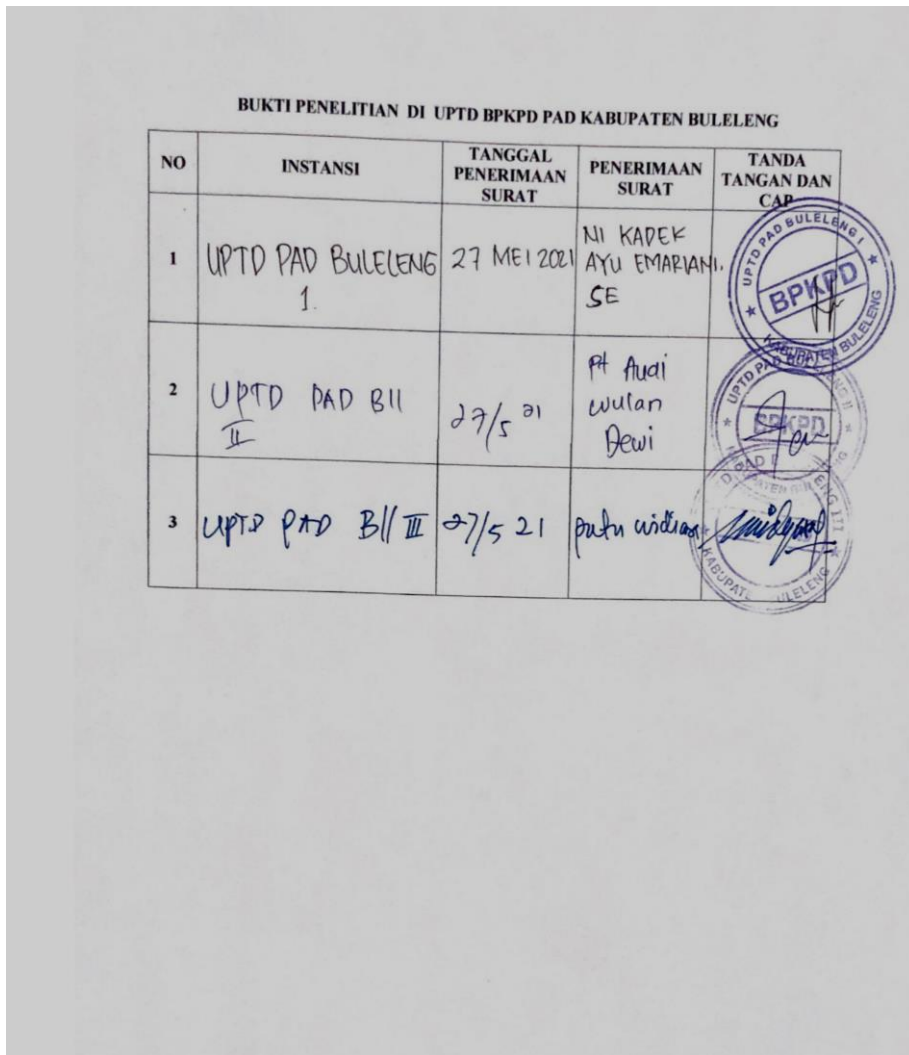 BUKTI PENELITIAN DI UPTD BPKPD PAD KABUPATEN BULELENG
NO
INSTANSI
TANGGAL
PENERIMAAN
SURAT
PENERIMAAN
SURAT
TANDA
TANGAN DAN
CAP
1
UPTD PAD BULELENG
1.
27 MEI 2021
NI KADEK
AYU EMARIANI.
SE
UPTD PAD BULELENG I
BPKPD
KABUPATEN BULELENG
2
UPTD PAD Bll
II
27/5 21
Pt Audi
wulan
Dewi
UPTD PAD BULELENG II
BPKPD
3
UPTD PAD Bll III
27/5 21
putu
KABUPATE ULELENG